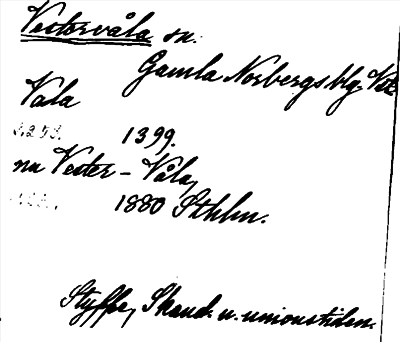 Vestervåla sn.
Gamla Norbergs blg. Vstm
Vala
1399.
nu Vester-Våla,
1880 Sthlm.
Styffe, Skand. u. unionstiden.